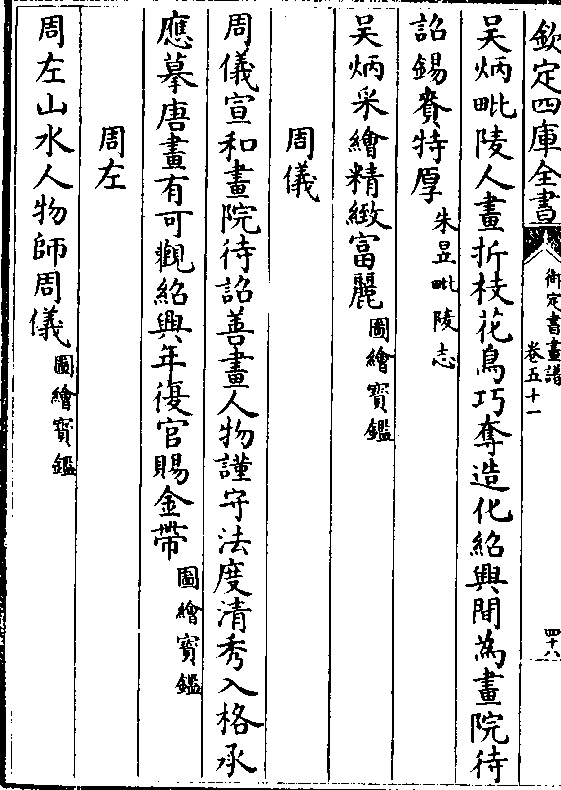 欽定四庫全書
御定書畫譜
卷五十一
四十八
吴炳毗陵人畫折枝花鳥巧奪造化紹興間為畫院待
詔錫賚特厚 朱昱毗陵志
吴炳采繪精緻富麗 圖繪寳鑑
周儀
周儀宣和畫院待詔善畫人物謹守法度清秀入格承
應摹唐畫有可觀紹興年復官賜金帶 圖繪寳鑑
周左
周左山水人物師周儀 圖繪寳鑑